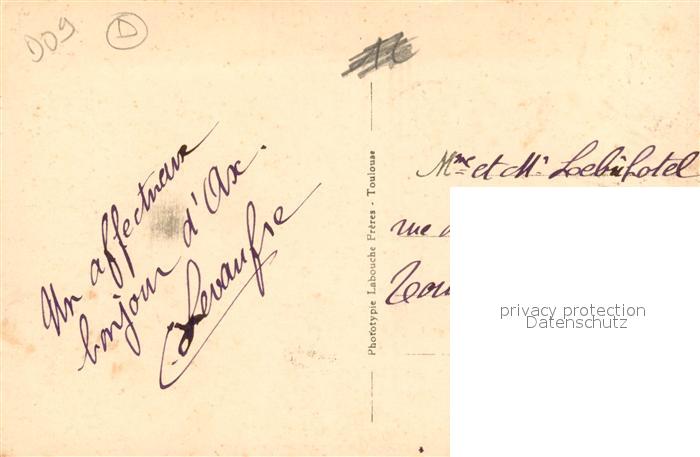 D09 D
Un affectueux
bonjour d'Ax.
Phototypie Labouche Frères - Toulouse
Mme et Mr Lebûhotel
rue
privacy protection
Datenschutz